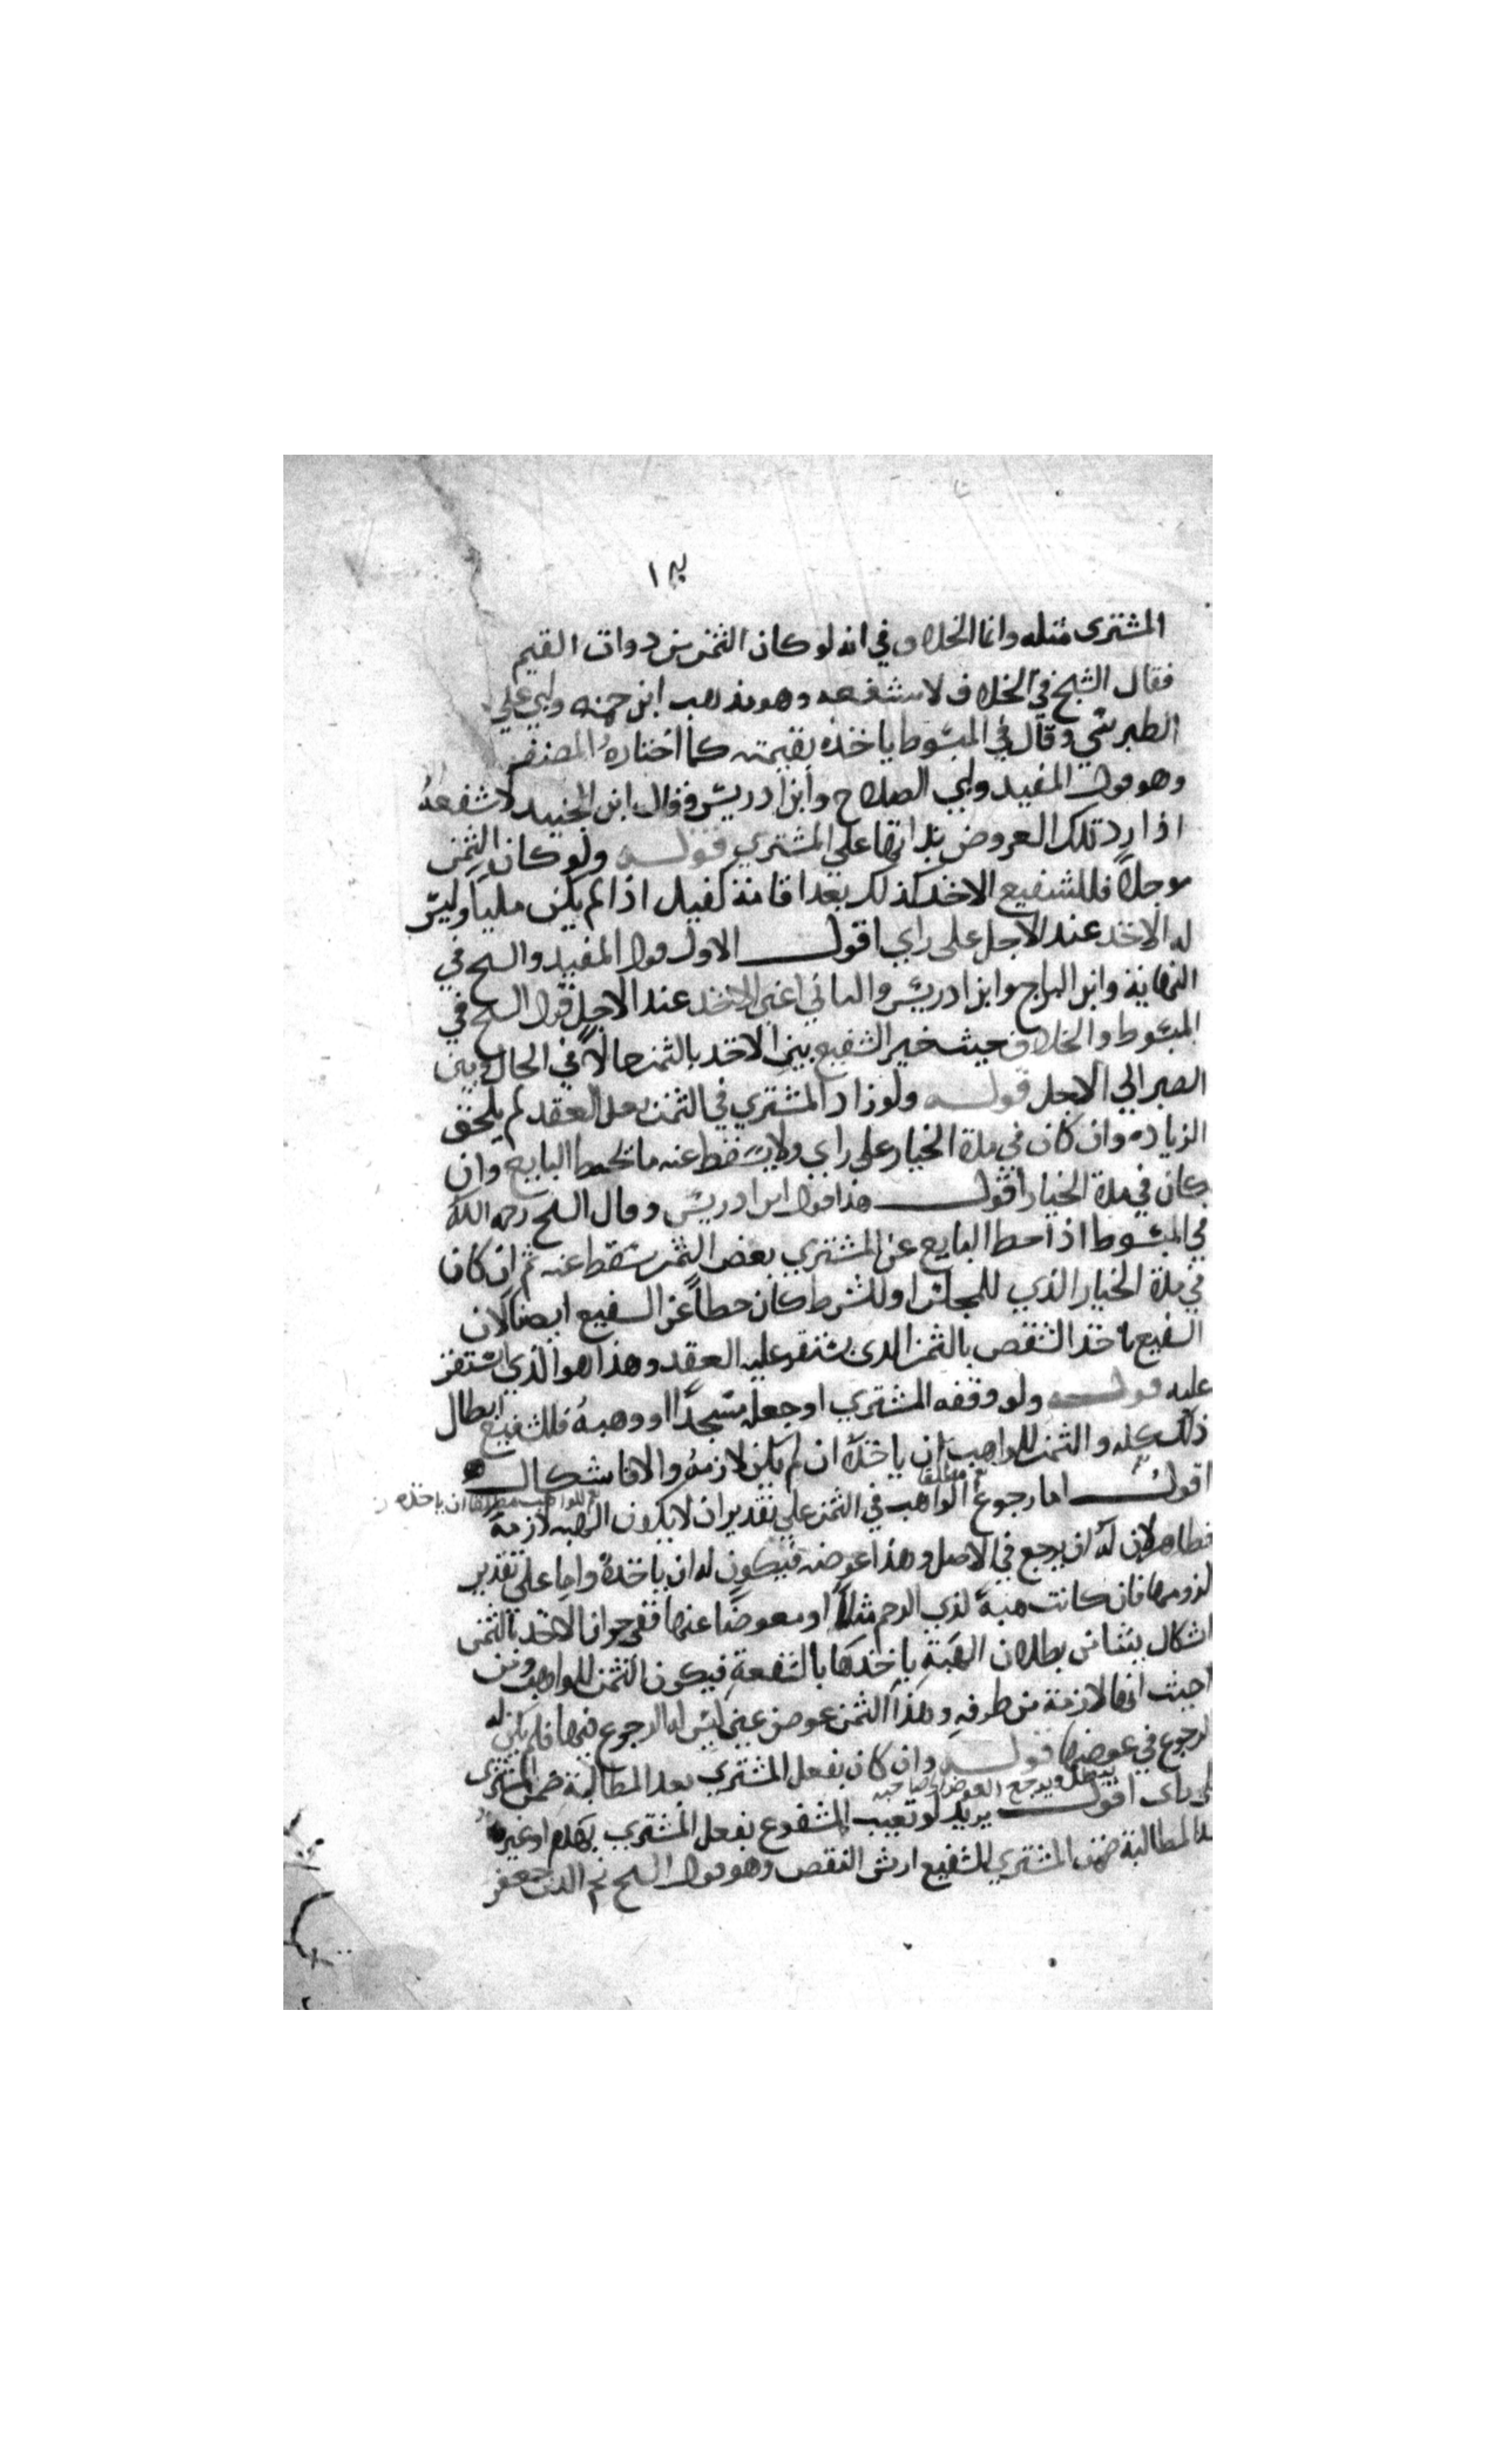 المشترى مثله وانما الخلاف في انه لو كان الثمن من ذوات القيم
فقال الشيخ في الخلاف لا شفعه وهو مذهب ابن حمزه وابي علي
الطبرسي وقال في المبسوط ياخذه بقيمته كما اختاره المصنف
وهو قول المفيد وابي الصلاح وابن ادريس وقال ابن الجنيد لا شفعة
اذا لم يرد تلك العروض بذاتها على المشتري قوله ولو كان الثمن
موجلا فللشفيع الاخذ كذلك بعد اقامة كفيل اذا لم يكن مليا وليس
له الاخذ عند الاجل على راي اقول الاول قول المفيد والشيخ في
النهاية وابن البراج وابن ادريس والثاني اعني الاخذ عند الاجل قول الشيخ في
المبسوط والخلاف حيث خير الشفيع بين الاخذ بالثمن حالا في الحال وبين
الصبر الي الاجل قوله ولو زاد المشتري في الثمن بعد العقد لم يلحق
الزياده وان كان في مدة الخيار على راي ولا يسقط عنه ما يحط البايع وان
كان في مدة الخيار اقول هذا قول ابن ادريس وقال الشيخ رحمه الله
في المبسوط اذا حط البايع عن المشتري بعض الثمن سقط عنه ثم ان كان
في مدة الخيار الذي للمجلس او للشرط كان حطا عن الشفيع ايضا لان
الشفيع ياخذ الشقص بالثمن الذي يستقر عليه العقد وهذا هو الذي استقر
عليه قوله ولو وقفه المشتري او جعله مسجدا او وهبه فللشفيع ابطال
ذلك كله والثمن للواهب ان ياخذه ان لم يكن لازمة والا فاشكال
اقول اما رجوع الواهب في الثمن على تقدير ان لا يكون الهبه لازمة
فظاهر لان له ان يرجع في الاصل وهذا عوضه فيكون له ان ياخذه واما على تقدير
لزومها فان كانت هبة لذي الرحم مثلا او معوضا عنها ففي جواز الاخذ بالثمن
اشكال ينشا من بطلان الهبة باخذها بالشفعة فيكون الثمن للواهب ومن
حيث انها لازمة من طرفه وهذا الثمن عوض عين ليس له الرجوع فيها فلم يكن له
الرجوع في عوضها قوله وان كان بفعل المشتري بعد المطالبة ضمن المشتري
على راى اقول يريد لو تعيب المشفوع بفعل المشتري بهدم او غيره
بعد المطالبة ضمن المشتري للشفيع ارش النقص وهو قول الشيخ نجم الدين جعفر